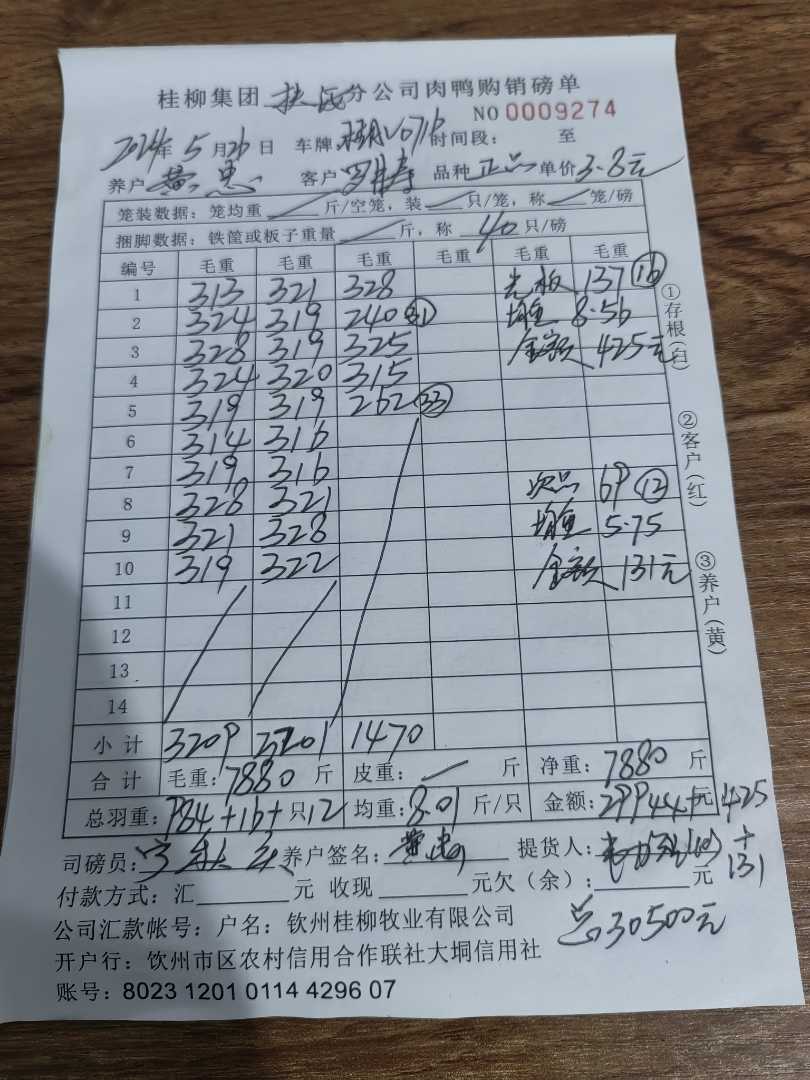 桂柳集团 分公司肉鸭购销磅单
NO 0009274
2024年 5 月 26 日 车牌 时间段: 至
养户 黄 客户 罗 品种 正品 单价 3.8元
笼装数据: 笼均重 / 斤/空笼, 装 / 只/笼, 称 / 笼/磅
捆脚数据: 铁筐或板子重量 / 斤, 称 40 只/磅
编号 毛重 毛重 毛重 毛重 毛重 毛重
1 313 321 328 光板 137 (16)
2 324 319 240 (31) 均重 8.56
3 328 319 325 金额 425元
4 324 320 315
5 319 319 262 (33)
6 314 316
7 319 316
8 328 321 次品 69 (12)
9 321 328 均重 5.75
10 319 322 金额 131元
11
12
13
14
小计 3209 3201 1470
合计 毛重: 7880 斤 皮重: / 斤 净重: 7880 斤
总羽重: 984+16+只12 均重: 8.01 斤/只 金额: 29944+元 425
+
131
司磅员: 养户签名: 提货人:
付款方式: 汇 元 收现 元欠(余): 元
公司汇款帐号: 户名: 钦州桂柳牧业有限公司
总30500元
开户行: 钦州市区农村信用合作联社大垌信用社
账号: 8023 1201 0114 4296 07
①存根(白)
②客户(红)
③养户(黄)